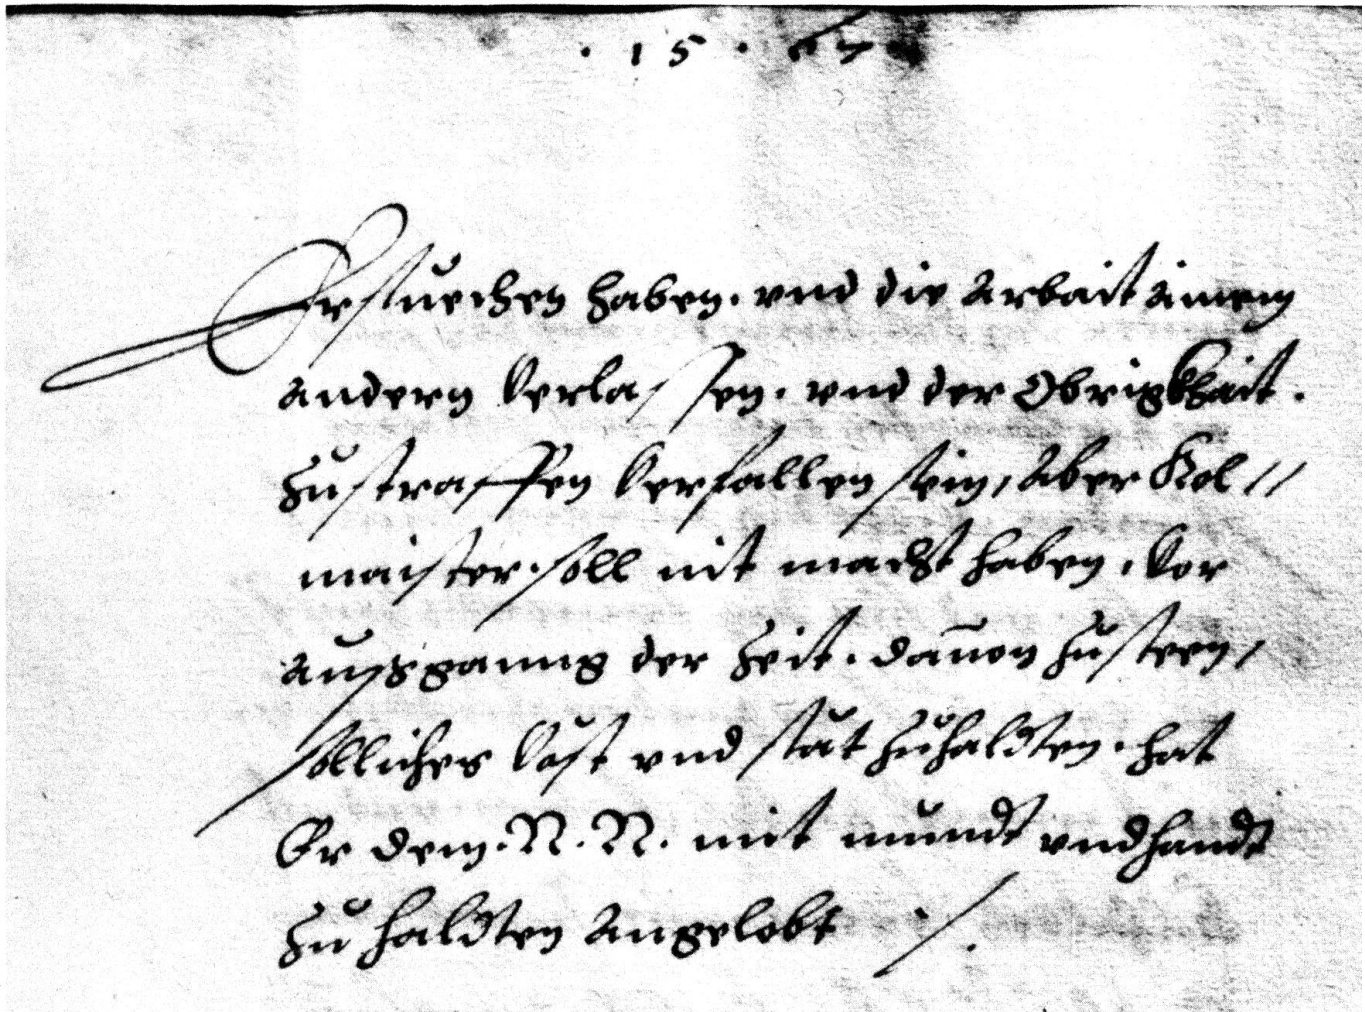 · 15 · 67 ·
Ersuechen haben. vnd die Arbait ainem
andern verlassen. vnd der Obrigkhait.
zustraffen verfallen sein, Aber Kol //
maister. soll nit macht haben. vor
außganng der zeit. dauon zusteen,
sölliches vöst vnd stät zuhaldten. hat
Er dem. N. N. mit mundt vnd handt
zuhaldten Angelobt ./.